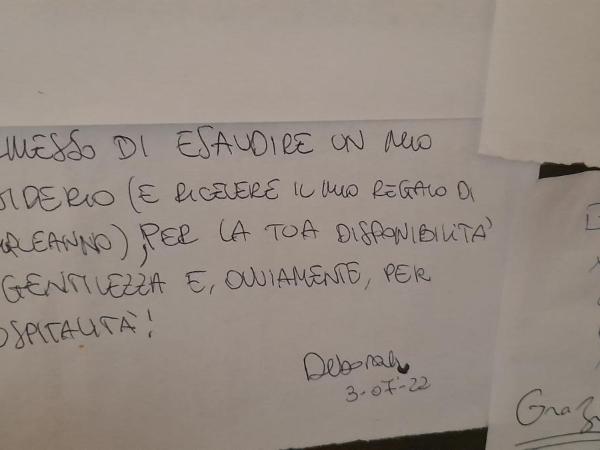 MESSO DI ESAUDIRE UN MIO
SIDERIO (E RICEVERE IL MIO REGALO DI
PLEANNO), PER LA TUA DISPONIBILITÀ
GENTILEZZA E, OVVIAMENTE, PER
OSPITALITÀ!
Deborah
3-07-22
Graz